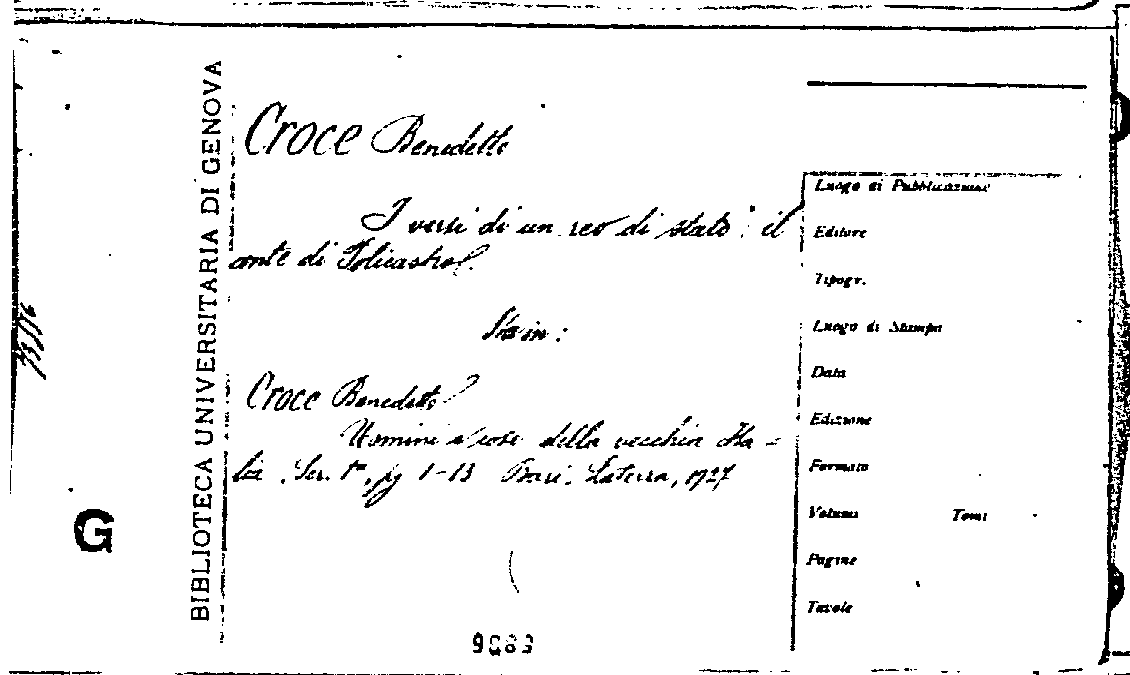 BIBLIOTECA UNIVERSITARIA DI GENOVA
Croce Benedetto
I versi di un reo di stato: il
onte di Policastro.
Sta in:
Croce Benedetto
Uomini e cose della vecchia Ita-
lia. Ser. 1ª, pg 1-13 Bari. Laterza, 1927
Luogo di Pubblicazione
Editore
Tipogr.
Luogo di Stampa
Data
Edizione
Formato
Volumi Tomi
Pagine
Tavole
G
9083